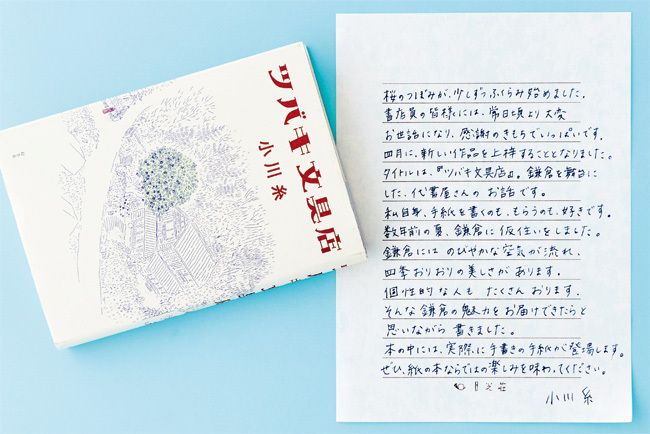 ツバキ文具店
小川糸
桜のつぼみが、少しずつふくらみ始めました。
書店員の皆様には、常日頃より大変
お世話になり、感謝のきもちでいっぱいです。
四月に、新しい作品を上梓することとなりました。
タイトルは、『ツバキ文具店』。鎌倉を舞台に
した、代書屋さんのお話です。
私自身、手紙を書くのも、もらうのも、好きです。
数年前の夏、鎌倉に仮住いをしました。
鎌倉には のびやかな空気が流れ、
四季おりおりの美しさが あります。
個性的な人も たくさん おります。
そんな鎌倉の魅力をお届けできたらと
思いながら 書きました。
本の中には、実際に手書きの手紙が登場します。
ぜひ、紙の本ならではの楽しみを味わってください。
月光荘
小川 糸